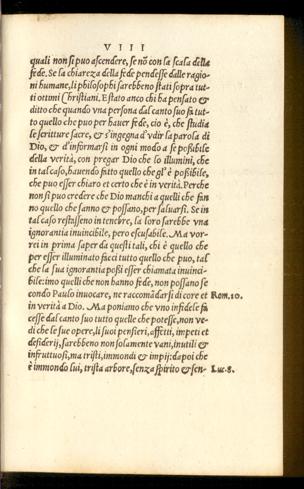 VIII
quali non si puo ascendere, se nõ con la scala della
fede. Se la chiareza della fede pendesse dalle ragio-
ni humane, li philosophi sarebbeno stati sopra tut-
ti ottimi Christiani. E stato anco chi ha pensato &
ditto che quando vna persona dal canto suo fa tut-
to quello che puo per hauer fede, cio è, che studia
le scritture sacre, & s'ingegna d'vdir la parola di
Dio, & d'informarsi in ogni modo a se poßibile
della verità, con pregar Dio che lo illumini, che
in tal caso, hauendo fatto quello che gl'è poßibile,
che puo esser chiaro et certo che è in verità. Perche
non si puo credere che Dio manchi a quelli che fan
no quello che sanno & possano, per saluarsi. Se in
tal caso restassino in tenebre, la loro sarebbe vna
ignorantia inuincibile, pero escusabile. Ma vor-
rei in prima saper da questi tali, chi è quello che
per esser illuminato facci tutto quello che puo, tal
che la sua ignorantia poßi esser chiamata inuinci-
bile: imo quelli che non hanno fede, non possano se
condo Paulo inuocare, ne raccomãdarsi di core et Rom. 10.
in verità a Dio. Ma poniamo che vno infidele fa
cesse dal canto suo tutto quelle che potesse, non ve-
di che le sue opere, li suoi pensieri, affetti, impeti et
desiderij, sarebbeno non solamente vani, inutili &
infruttuosi, ma tristi, immondi & impij: dapoi che
è immondo lui, trista arbore, senza spirito & sen- Luc. 8.